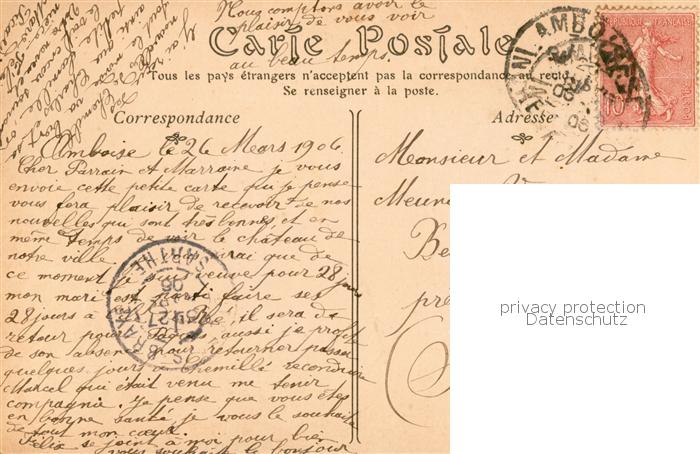 Nous comptons avoir le
plaisir de vous voir
Carte Postale
au beau temps.
Tous les pays étrangers n'acceptent pas la correspondance au recto
Se renseigner à la poste.
Correspondance
Adresse
Amboise le 26 Mars 1906.
Cher Parrain et Marraine je vous
envoie cette petite carte qui je pense
vous fera plaisir de recevoir de nos
nouvelles qui sont très bonnes et en
même temps de voir le château de
notre ville vrai que de
ce moment je suis veuve pour 28 jours
mon mari est parti faire ses
28 jours à il sera de
retour pour aussi je profite
de son absence pour retourner passer
quelques jours à Chemillé reconduire
Marcel qui était venu me tenir
compagnie. Je pense que vous êtes
en bonne santé je vous le souhaite
de tout mon cœur.
Félix se joint à moi pour bien
vous souhaiter le bonjour
Monsieur et Madame
Meunier
Be
pr
REPUBLIQUE FRANÇAISE
10
AMBOISE
SARTHE
privacy protection
Datenschutz